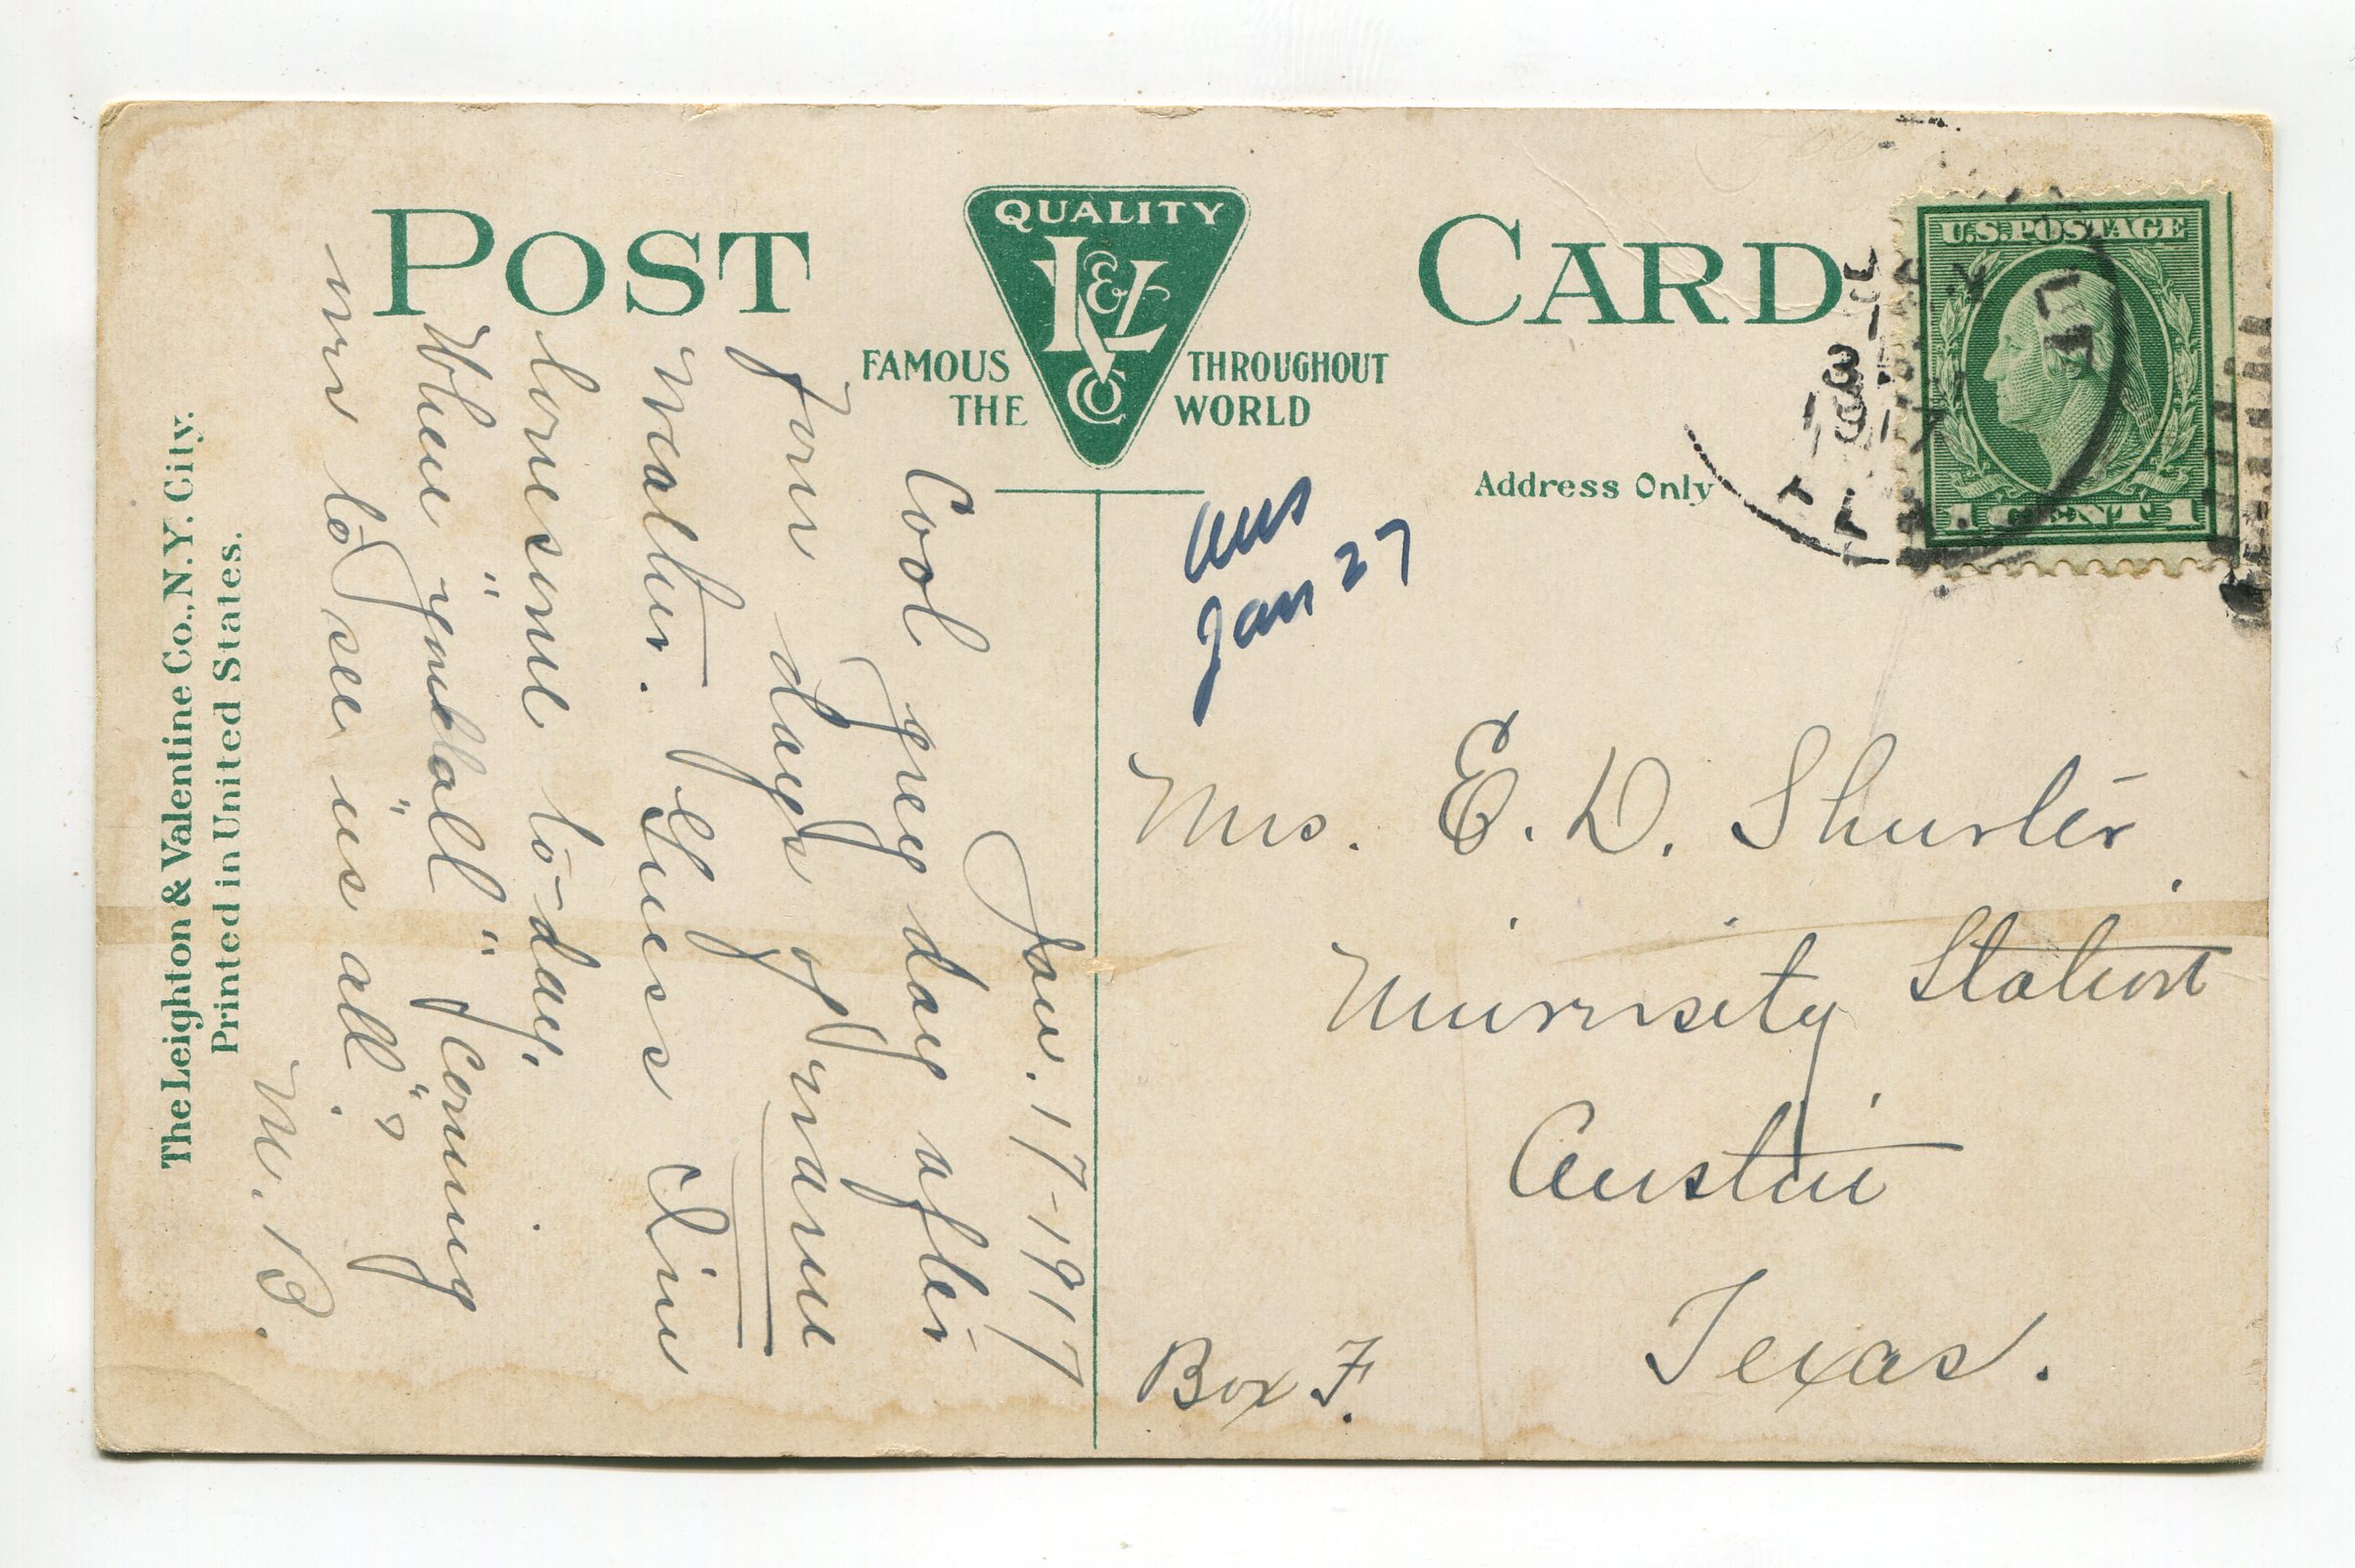 POST CARD
QUALITY
L & V
CO
FAMOUS THROUGHOUT
THE WORLD
Address Only
U.S. POSTAGE
1 CENT 1
The Leighton & Valentine Co., N.Y. City.
Printed in United States.
Jan. 17-1917
Cool grey day after
four days of warm
weather. Guess I'm
lonesome to-day.
When "you"all" coming
over to see "us all"?
M. B.
ans
Jan 27
Mrs. E. D. Shurter
University Station
Austin
Texas.
Box F.